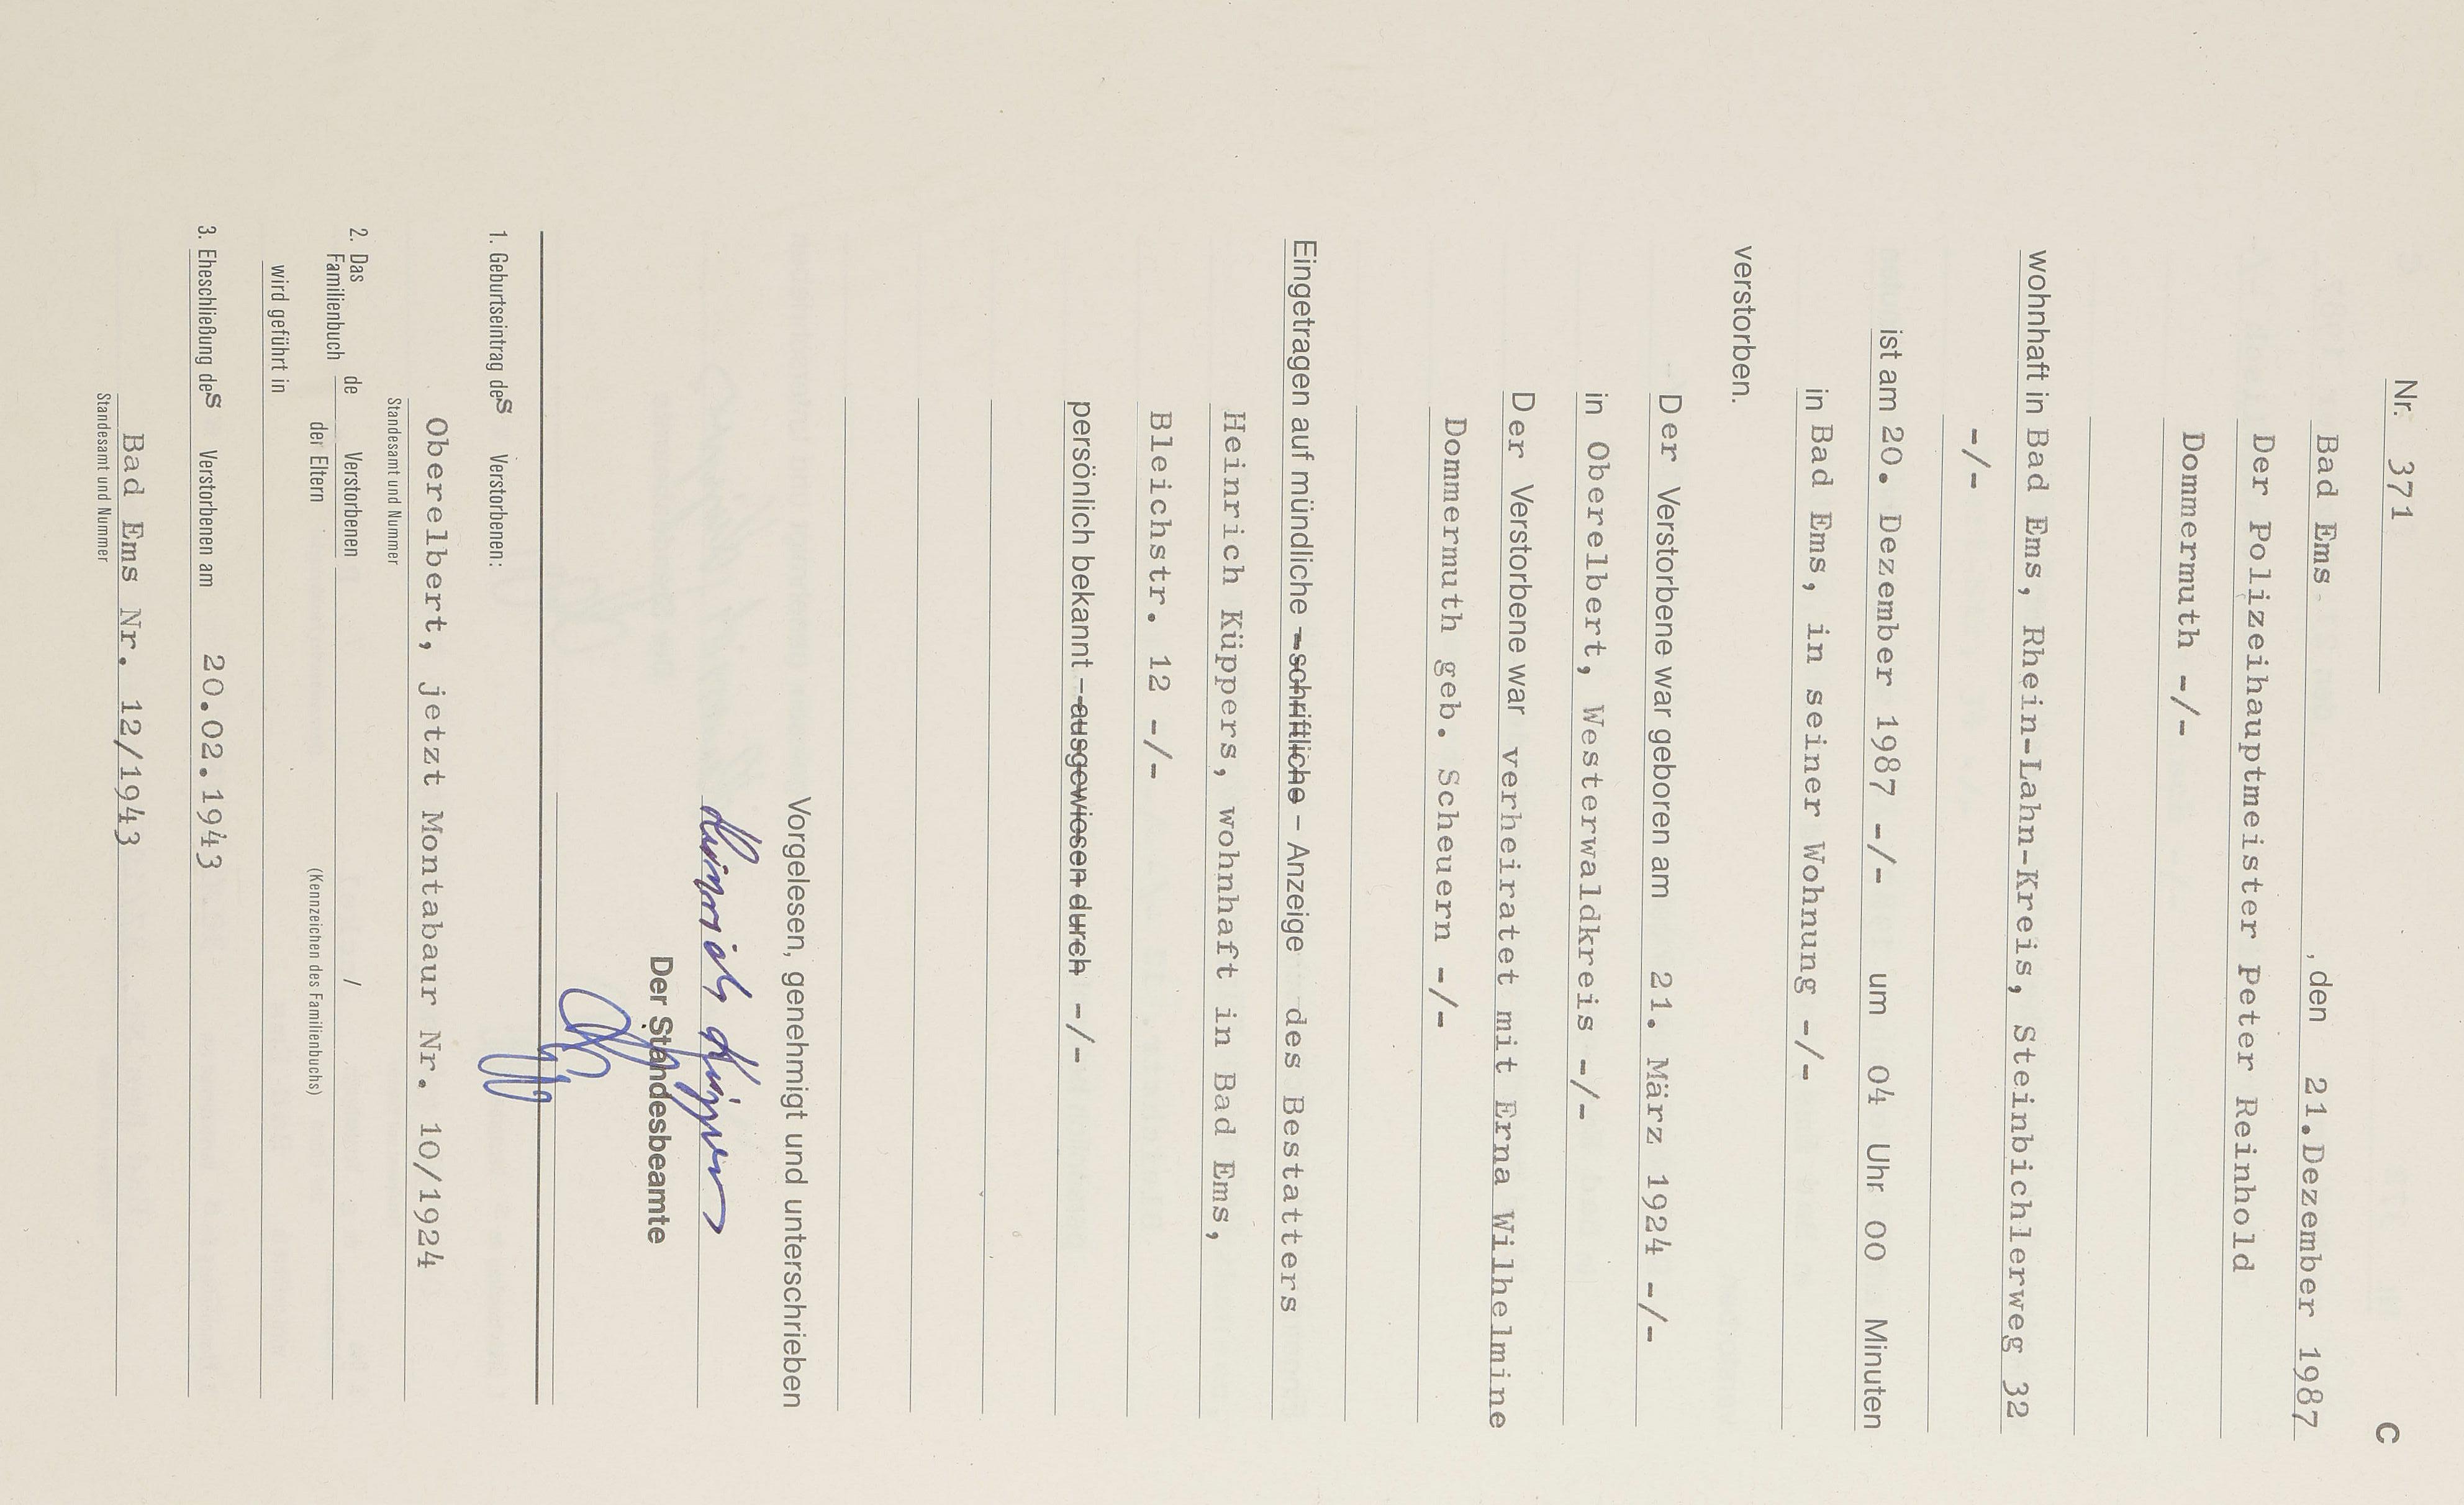 Nr. 371 C
Bad Ems , den 21.Dezember 1987
Der Polizeihauptmeister Peter Reinhold
Dommermuth -/-
wohnhaft in Bad Ems, Rhein-Lahn-Kreis, Steinbichlerweg 32
-/-
ist am 20. Dezember 1987 -/- um 04 Uhr 00 Minuten
in Bad Ems, in seiner Wohnung -/-
verstorben.
Der Verstorbene war geboren am 21. März 1924 -/-
in Oberelbert, Westerwaldkreis -/-
Der Verstorbene war verheiratet mit Erna Wilhelmine
Dommermuth geb. Scheuern -/-
Eingetragen auf mündliche – schriftliche – Anzeige des Bestatters
Heinrich Küppers, wohnhaft in Bad Ems,
Bleichstr. 12 -/-
persönlich bekannt – ausgewiesen durch -/-
Vorgelesen, genehmigt und unterschrieben
Heinrich Küppers
Der Standesbeamte
1. Geburtseintrag des Verstorbenen:
Oberelbert, jetzt Montabaur Nr. 10/1924
Standesamt und Nummer
2. Das Familienbuch de Verstorbenen /
der Eltern (Kennzeichen des Familienbuchs)
wird geführt in
3. Eheschließung des Verstorbenen am 20.02.1943
Bad Ems Nr. 12/1943
Standesamt und Nummer